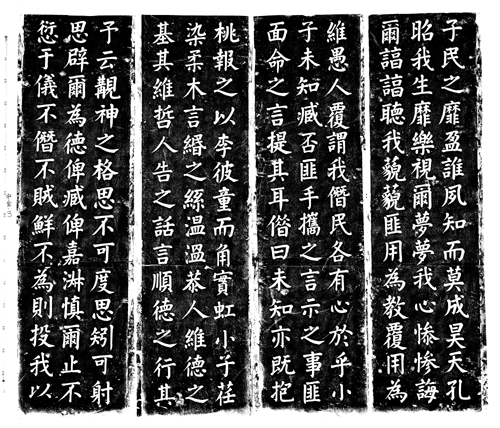 子民之靡盈誰夙知而莫成昊天孔
昭我生靡樂視爾夢夢我心慘慘誨
爾諄諄聽我藐藐匪用為教覆用為
維愚人覆謂我僭民各有心於乎小
子未知臧否匪手攜之言示之事匪
面命之言提其耳借曰未知亦既抱
桃報之以李彼童而角實虹小子荏
染柔木言緡之絲溫溫恭人維德之
基其維哲人告之話言順德之行其
予云覯神之格思不可度思矧可射
思辟爾為德俾臧俾嘉淑慎爾止不
愆于儀不僭不賊鮮不為則投我以